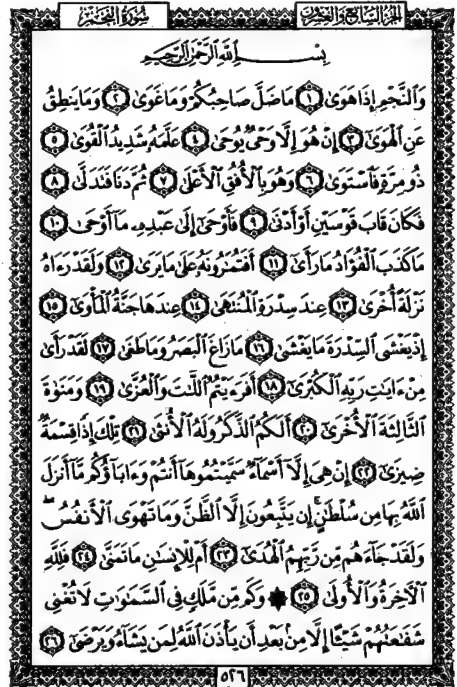 سُورَةُ النَّجْمِ
الجزء السابع والعشرون
بِسْمِ اللَّهِ الرَّحْمَٰنِ الرَّحِيمِ
وَالنَّجْمِ إِذَا هَوَىٰ ۝١ مَا ضَلَّ صَاحِبُكُمْ وَمَا غَوَىٰ ۝٢ وَمَا يَنطِقُ
عَنِ الْهَوَىٰ ۝٣ إِنْ هُوَ إِلَّا وَحْيٌ يُوحَىٰ ۝٤ عَلَّمَهُ شَدِيدُ الْقُوَىٰ ۝٥
ذُو مِرَّةٍ فَاسْتَوَىٰ ۝٦ وَهُوَ بِالْأُفُقِ الْأَعْلَىٰ ۝٧ ثُمَّ دَنَا فَتَدَلَّىٰ ۝٨
فَكَانَ قَابَ قَوْسَيْنِ أَوْ أَدْنَىٰ ۝٩ فَأَوْحَىٰ إِلَىٰ عَبْدِهِ مَا أَوْحَىٰ ۝١٠
مَا كَذَبَ الْفُؤَادُ مَا رَأَىٰ ۝١١ أَفَتُمَارُونَهُ عَلَىٰ مَا يَرَىٰ ۝١٢ وَلَقَدْ رَءَاهُ
نَزْلَةً أُخْرَىٰ ۝١٣ عِندَ سِدْرَةِ الْمُنتَهَىٰ ۝١٤ عِندَهَا جَنَّةُ الْمَأْوَىٰ ۝١٥
إِذْ يَغْشَى السِّدْرَةَ مَا يَغْشَىٰ ۝١٦ مَا زَاغَ الْبَصَرُ وَمَا طَغَىٰ ۝١٧ لَقَدْ رَأَىٰ
مِنْ ءَايَاتِ رَبِّهِ الْكُبْرَىٰ ۝١٨ أَفَرَءَيْتُمُ اللَّاتَ وَالْعُزَّىٰ ۝١٩ وَمَنَوٰةَ
الثَّالِثَةَ الْأُخْرَىٰ ۝٢٠ أَلَكُمُ الذَّكَرُ وَلَهُ الْأُنثَىٰ ۝٢١ تِلْكَ إِذًا قِسْمَةٌ
ضِيزَىٰ ۝٢٢ إِنْ هِيَ إِلَّا أَسْمَاءٌ سَمَّيْتُمُوهَا أَنتُمْ وَءَابَاؤُكُم مَّا أَنزَلَ
اللَّهُ بِهَا مِن سُلْطَانٍ ۚ إِن يَتَّبِعُونَ إِلَّا الظَّنَّ وَمَا تَهْوَى الْأَنفُسُ ۖ
وَلَقَدْ جَاءَهُم مِّن رَّبِّهِمُ الْهُدَىٰ ۝٢٣ أَمْ لِلْإِنسَانِ مَا تَمَنَّىٰ ۝٢٤ فَلِلَّهِ
الْآخِرَةُ وَالْأُولَىٰ ۝٢٥ ۞ وَكَم مِّن مَّلَكٍ فِي السَّمَاوَاتِ لَا تُغْنِي
شَفَاعَتُهُمْ شَيْئًا إِلَّا مِن بَعْدِ أَن يَأْذَنَ اللَّهُ لِمَن يَشَاءُ وَيَرْضَىٰ ۝٢٦
٥٢٦